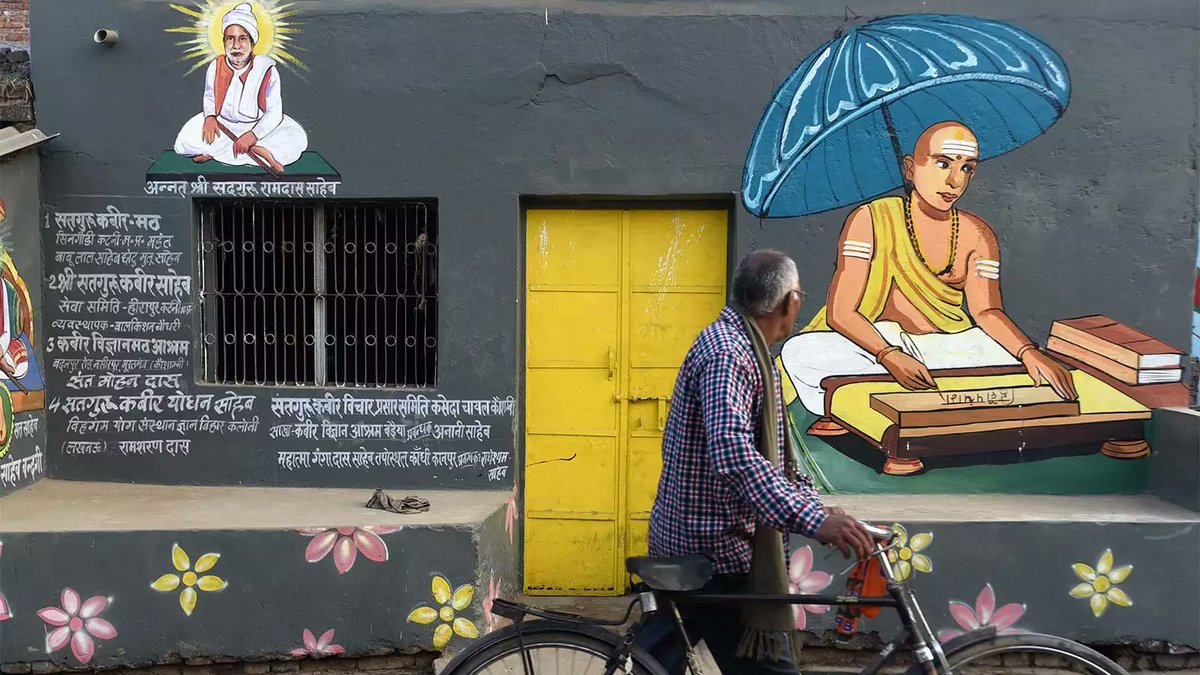 अनन्त श्री सद्गुरू रामदास साहेब
1 सतगुरू कबीर-मठ
सिनगौंडी कटनी-म॰प्र॰ महंत
बाबू लाल साहेब
2 श्री सतगुरू कबीर साहेब
सेवा समिति-हीरापुर कटनी
व्यवस्थापक-बालकिशन चौधरी
3 कबीर विज्ञानमठ आश्रम
संत मोहन दास
4 सतगुरू कबीर योधन साहेब
विहंगम योग संस्थान ज्ञान विहार कलोनी
(लखनऊ) रामशरण दास
सतगुरू कबीर विचार प्रसार समिति कसेंदा चायल
कबीर विज्ञान आश्रम अनामी साहेब
महात्मा गंगा दास साहेब तपोस्थल कानपुर
साहेब
साहेब बन्दगी